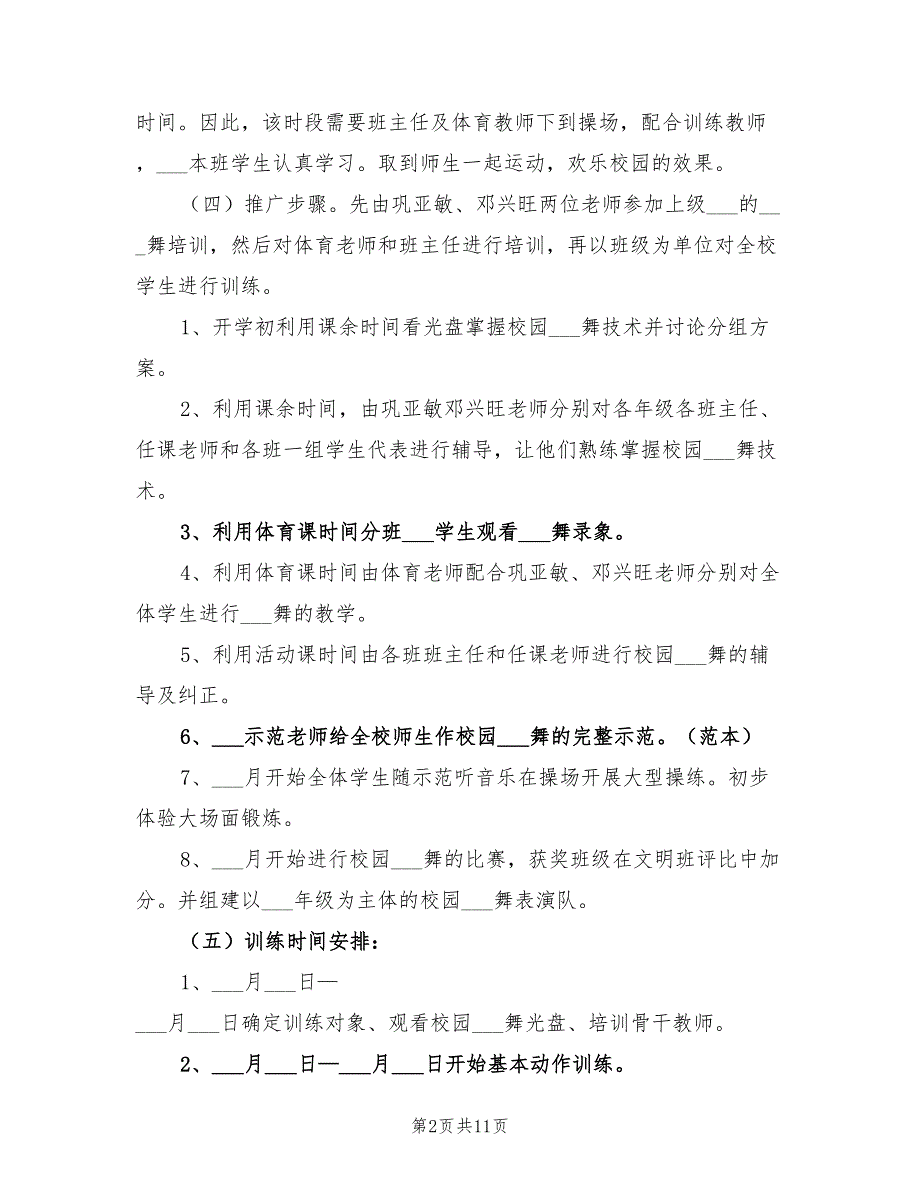 时间。因此，该时段需要班主任及体育教师下到操场，配合训练教师
，___本班学生认真学习。取到师生一起运动，欢乐校园的效果。
（四）推广步骤。先由巩亚敏、邓兴旺两位老师参加上级___的__
_舞培训，然后对体育老师和班主任进行培训，再以班级为单位对全校
学生进行训练。
1、开学初利用课余时间看光盘掌握校园___舞技术并讨论分组方
案。
2、利用课余时间，由巩亚敏邓兴旺老师分别对各年级各班主任、
任课老师和各班一组学生代表进行辅导，让他们熟练掌握校园___舞技
术。
3、利用体育课时间分班___学生观看___舞录象。
4、利用体育课时间由体育老师配合巩亚敏、邓兴旺老师分别对全
体学生进行___舞的教学。
5、利用活动课时间由各班班主任和任课老师进行校园___舞的辅
导及纠正。
6、___示范老师给全校师生作校园___舞的完整示范。（范本）
7、___月开始全体学生随示范听音乐在操场开展大型操练。初步
体验大场面锻炼。
8、___月开始进行校园___舞的比赛，获奖班级在文明班评比中加
分。并组建以___年级为主体的校园___舞表演队。
（五）训练时间安排：
1、___月___日—
___月___日确定训练对象、观看校园___舞光盘、培训骨干教师。
2、___月___日—___月___日开始基本动作训练。
第2页共11页